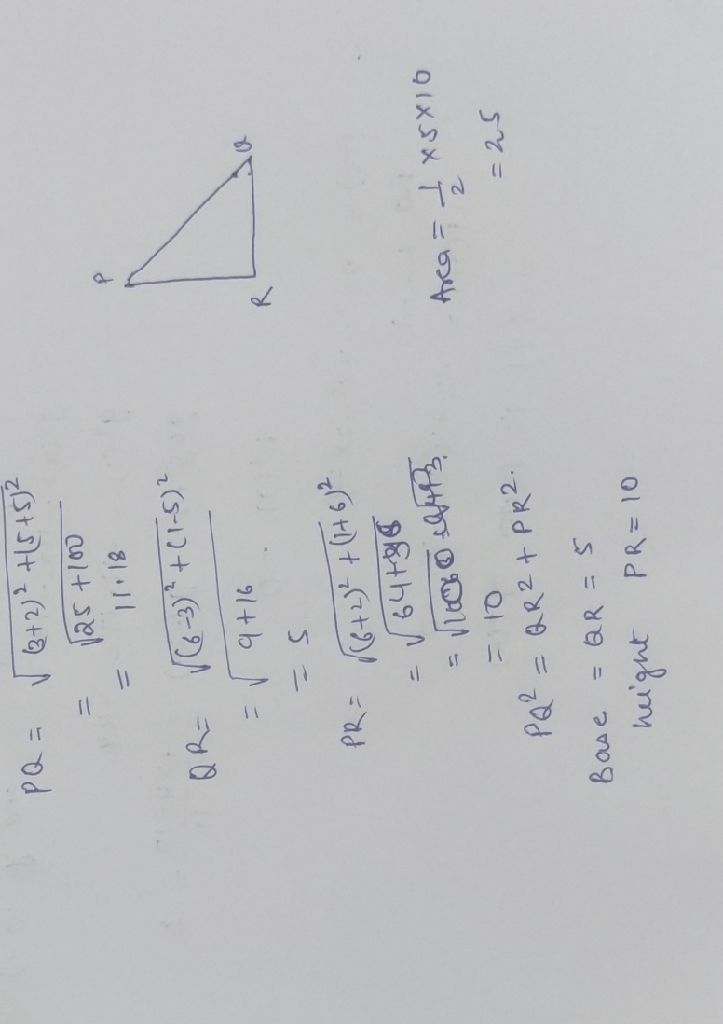 PQ = √(3+2)² + (5+5)²
= √25 + 100
= 11.18
QR = √(6-3)² + (1-5)²
= √9 + 16
= 5
PR = √(6+2)² + (1+6)²
= √64 +
= √100
= 10
PQ² = QR² + PR².
Base = QR = 5
height PR = 10
P
R
Q
Area = 1/2 × 5 × 10
= 25